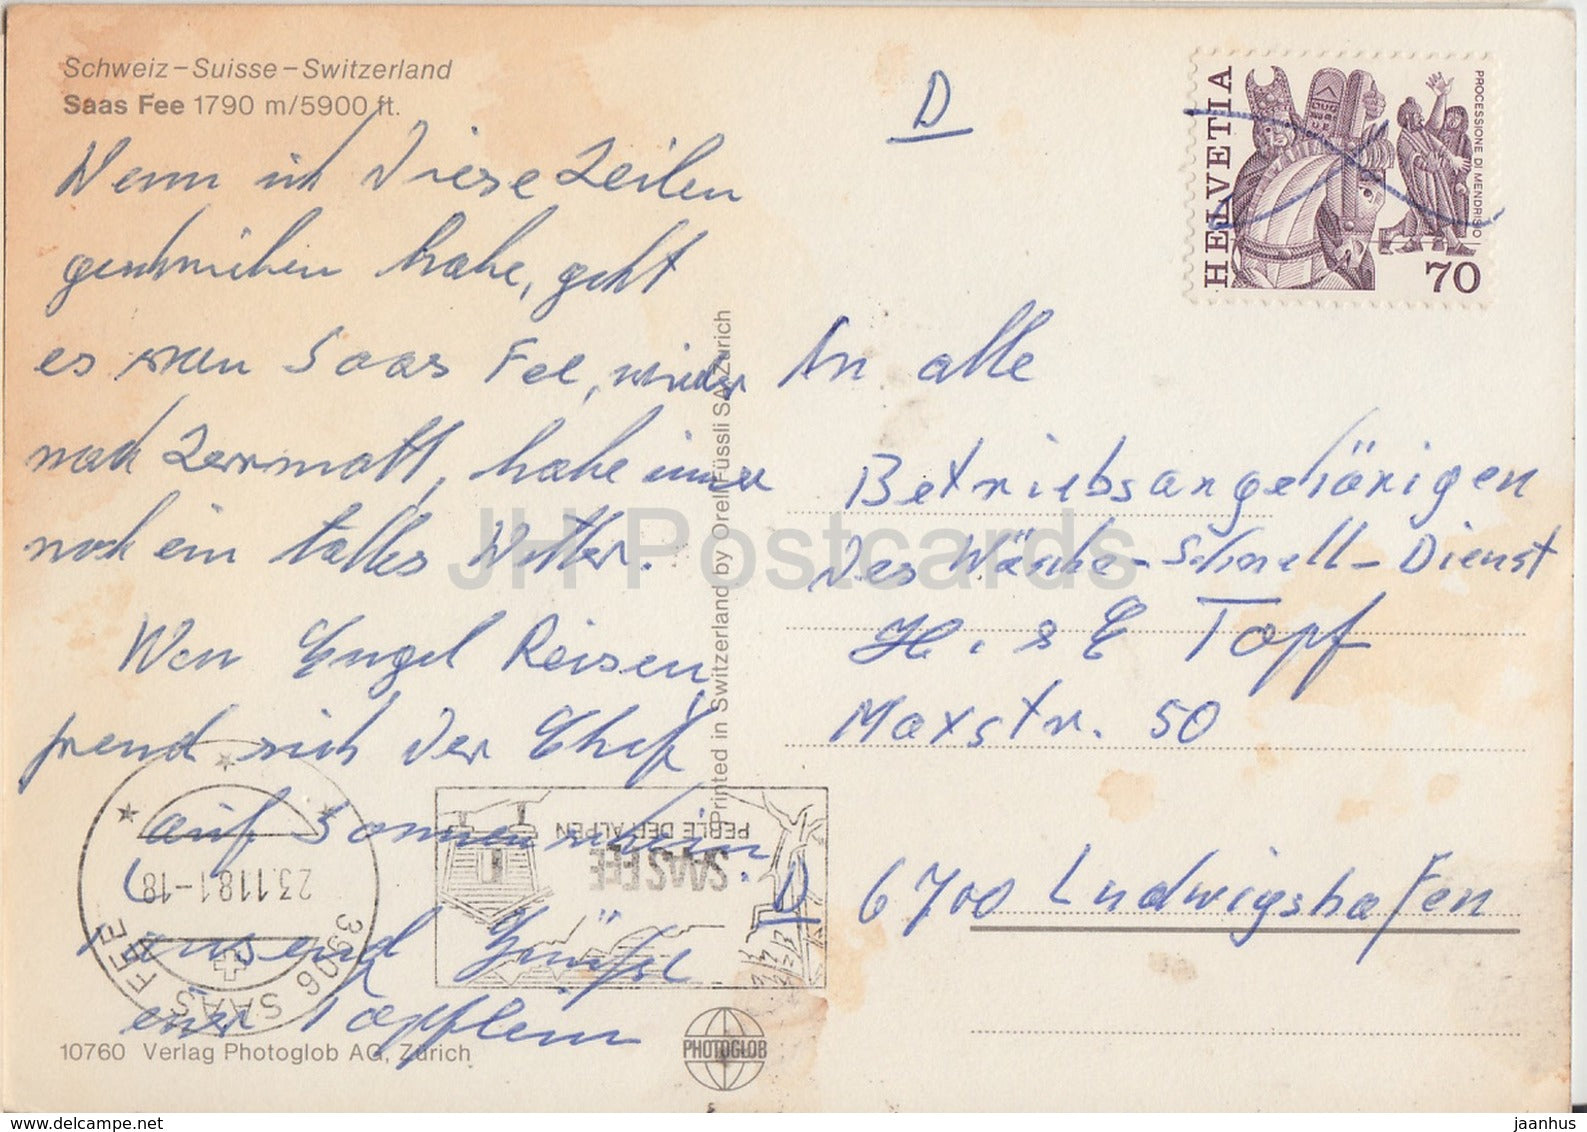 Schweiz – Suisse – Switzerland
Saas Fee 1790 m/5900 ft.
Wenn ich diese Zeilen
geschrieben habe, geht
es von Saas Fee, wieder
nach Zermatt, habe immer
noch ein tolles Wetter.
Wen Engel Reisen,
freud sich der Chef
auf Sonnenschein.
tausend Grüße
euer Töpflein
10760 Verlag Photoglob AG, Zürich
PHOTOGLOB
Printed in Switzerland by Orell Füssli SA Zürich
D
HELVETIA
PROCESSIONE DI MENDRISIO
70
An alle
Betriebsangehörigen
des Wäsche-Schnell-Dienst
H. & E Topf
Maxstr. 50
D 6700 Ludwigshafen
3906 SAAS FEE
23.11.81-18
SAAS FEE
PERLE DER ALPEN
JH Postcards
www.delcampe.net
jaanhus